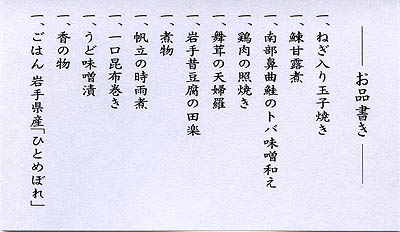 お品書き
一、ねぎ入り玉子焼き
一、鰊甘露煮
一、南部鼻曲鮭のトバ味噌和え
一、鶏肉の照焼き
一、舞茸の天婦羅
一、岩手昔豆腐の田楽
一、煮物
一、帆立の時雨煮
一、一口昆布巻き
一、うど味噌漬
一、香の物
一、ごはん 岩手県産「ひとめぼれ」